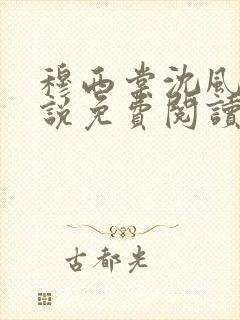 穆西棠沈风
說免費閱讀
古都光